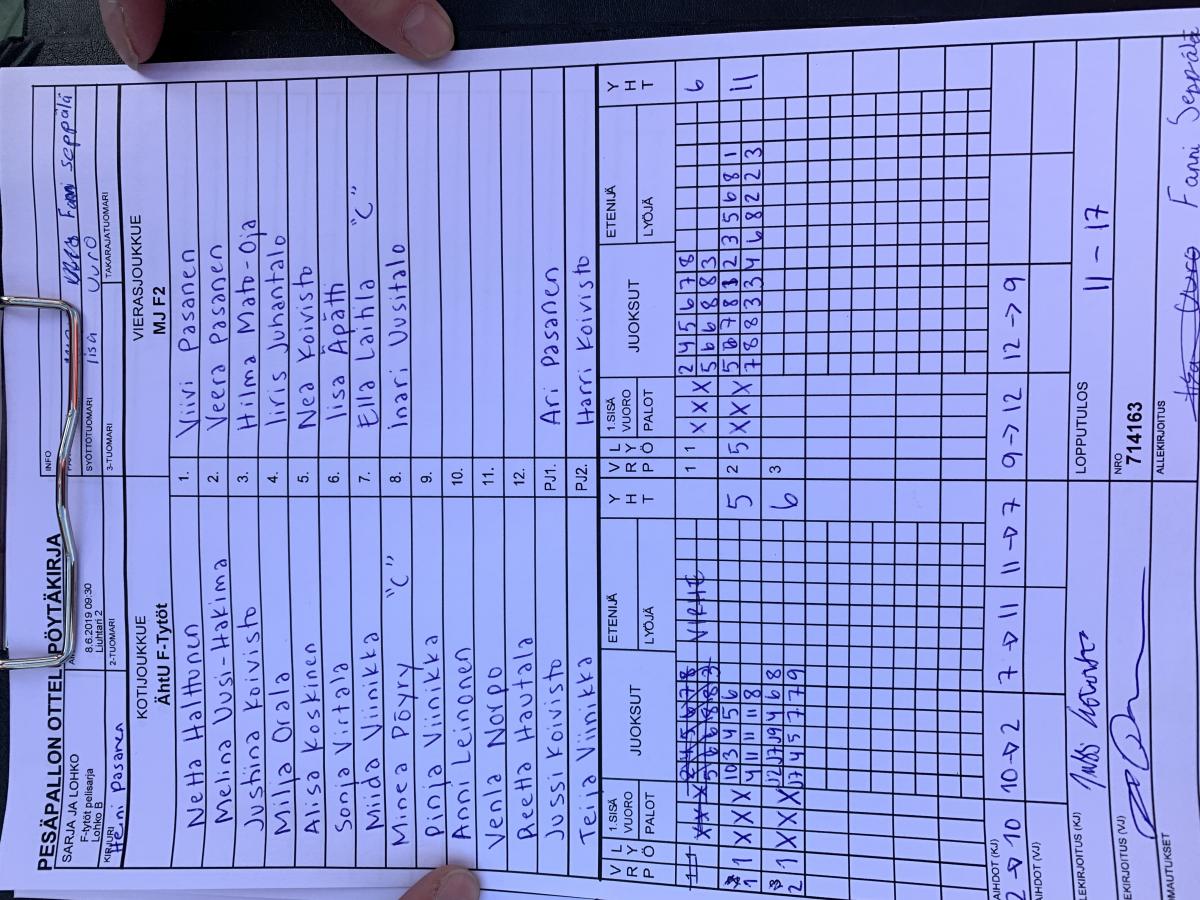 PESÄPALLON OTTELUPÖYTÄKIRJA
SARJA JA LOHKO
F-tytöt pelisarja
Lohko B
8.6.2019 09:30
Liuhtari 2
INFO
Fanni Seppälä
SYÖTTÖTUOMARI
Iisa
Uuro
KIRJURI
Heini Pasanen
2-TUOMARI
3-TUOMARI
TAKARAJATUOMARI
KOTIJOUKKUE
ÄhtU F-Tytöt
VIERASJOUKKUE
MJ F2
Netta Halttunen 1. Viivi Pasanen
Melina Uusi-Hakima 2. Veera Pasanen
Justiina Koivisto 3. Hilma Mato-Oja
Milja Orala 4. Iiris Juhantalo
Alisa Koskinen 5. Nea Koivisto
Sonja Virtala 6. Iisa Äpätti
Miida Viinikka 7. Ella Laitila "C"
Minea Pöyry "C" 8. Inari Uusitalo
Pinja Viinikka 9.
Anni Leinonen 10.
Venla Norpo 11.
Reetta Hautala 12.
Jussi Koivisto PJ1. Ari Pasanen
Teija Viinikka PJ2. Harri Koivisto
VRP LYÖ 1.SISÄ VUORO PALOT JUOKSUT ETENIJÄ LYÖJÄ YHT VRP LYÖ 1.SISÄ VUORO PALOT JUOKSUT ETENIJÄ LYÖJÄ YHT
1 1 X X X 2 4 5 6 7 8 VIRHE 1 1 X X X 2 4 5 6 7 8 6
5 6 6 8 8 3 5 6 6 8 8 3
1 1 X X X 10 3 4 5 6 5 2 5 X X X 5 6 7 8 1 2 3 5 6 8 1 11
4 11 11 11 8 7 8 8 3 3 4 6 8 2 2 3
2 1 X X X 12 17 19 4 6 8 6 3
17 4 5 7 7 9
2 → 10 10 → 2 7 → 11 11 → 7 9 → 12 12 → 9
LOPPUTULOS
11 - 17
NRO
714163
ALLEKIRJOITUS
Fanni Seppälä